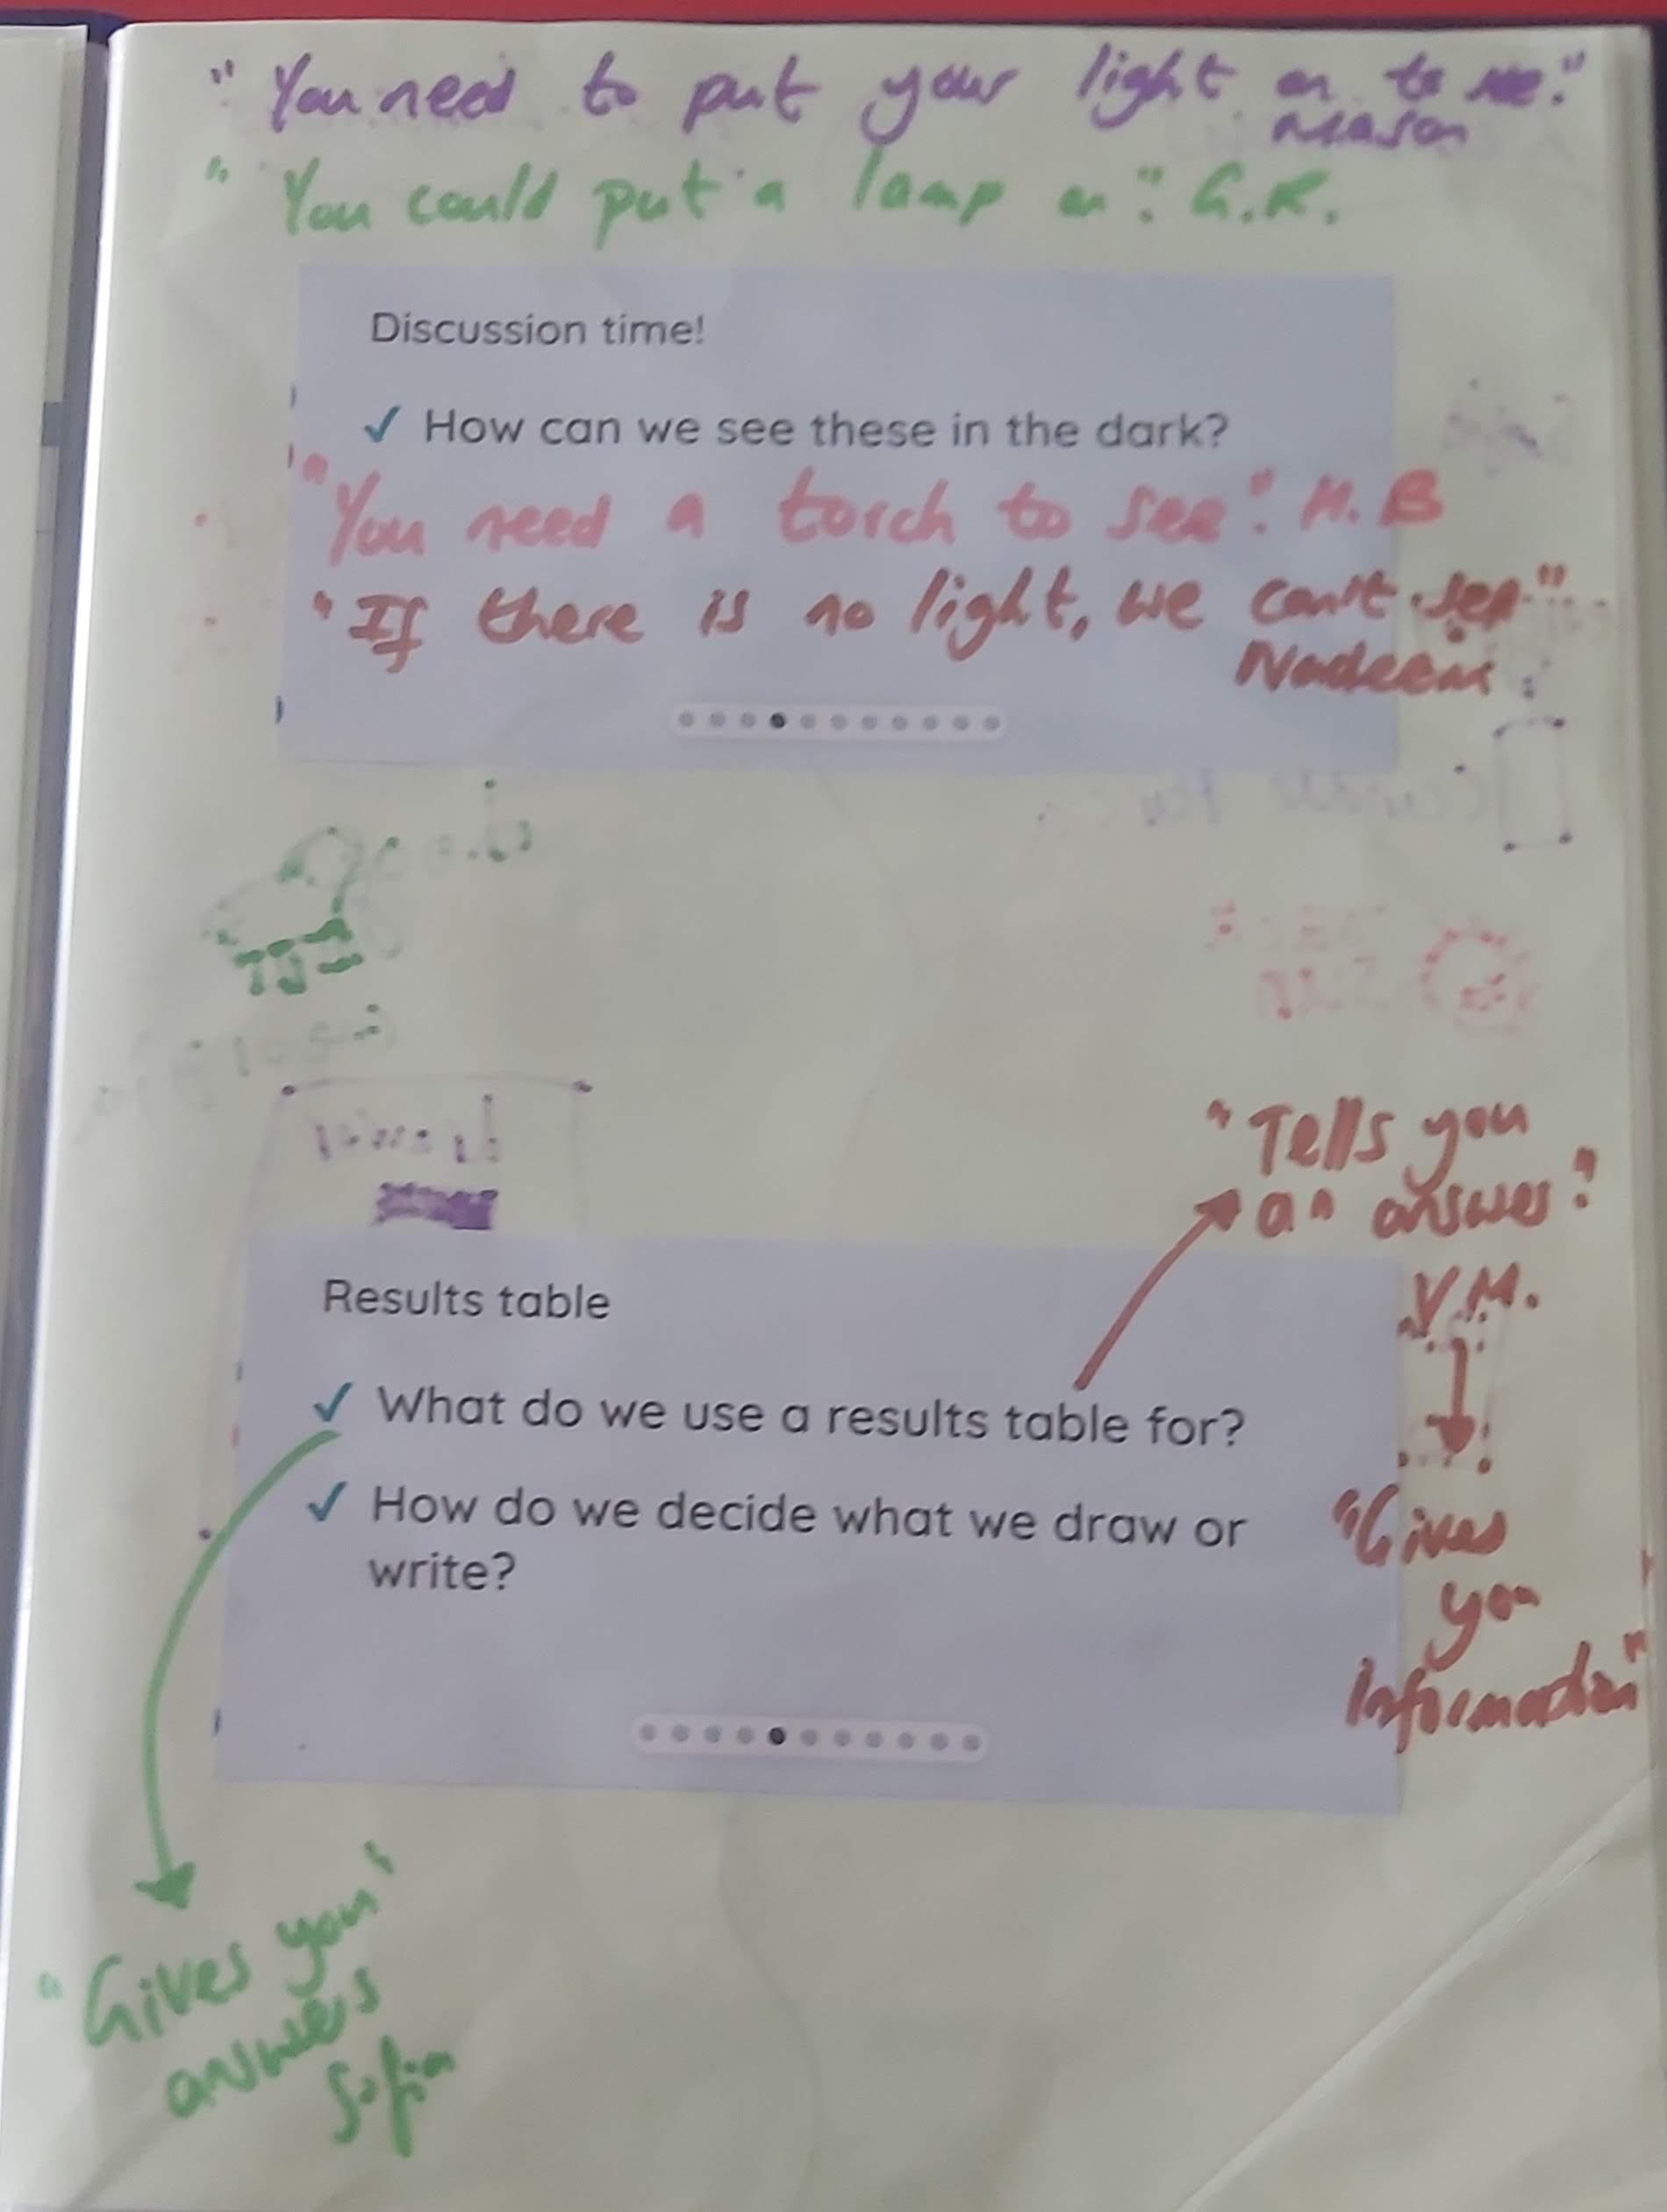 "You need to put your light on to see."
Mason
"You could put a lamp on". G.R.
Discussion time!
✓ How can we see these in the dark?
"You need a torch to see". H.B
"If there is no light, we can't see"
Nadeem
"Tells you
an answer"
V.M.
Results table
✓ What do we use a results table for?
✓ How do we decide what we draw or
write?
"Gives
you
information"
"Gives you
answers"
Sofia